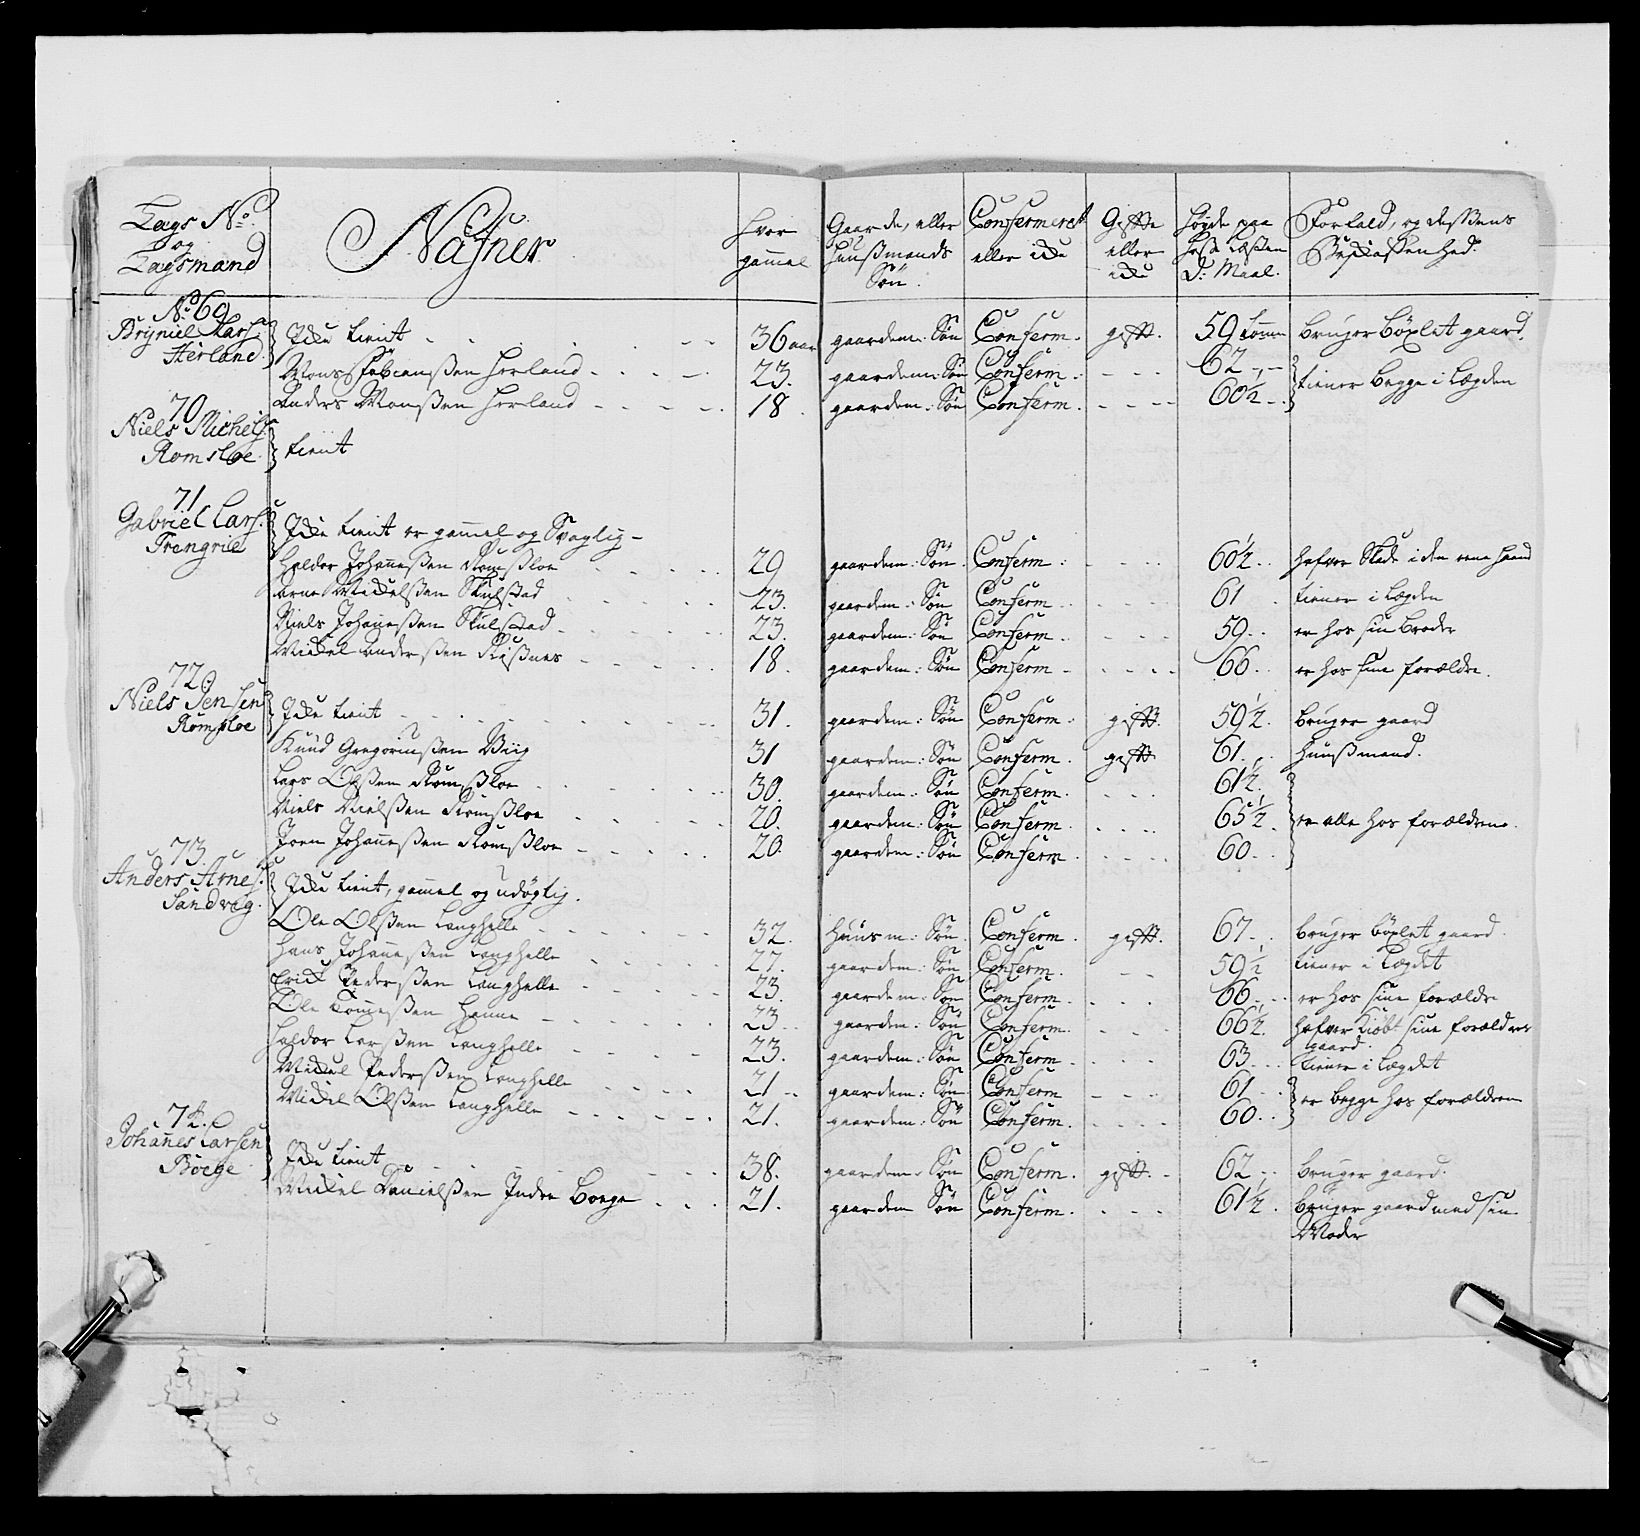 Lags No. og Lagsmand | Nafner | Hvor gammel | Gaarde, eller Huusmands Søn | Confermeret eller icke | Gifte eller icke | Høyde paa Høst Læsten D: Maal. | Forfald, og dessens Beskaffenhed
No. 69 Brÿniel Lars: Herland | Icke tient | 36 aar | gaardem: Søn | Conferm. | gifft. | 59 tomme | bruger böxlet gaard.
Mons Fabiansen Herland | 23. | gaardem: Søn | Conferm. | 62 | tiener begge i Lægden
Anders Monsen Herland | 18 | gaardem: Søn | Conferm. | 60½
70 Niels Michels: Romsloe | tient
71 Gabriel Lars: Trengrie | Icke tient er gammel og Svaglig
Haldor Johannesen Romsloe | 29 | gaardem: Søn | Conferm. | 60½ | hafver Skade i den eene haand
Arne Mickelsen Skulstad | 23. | gaardem: Søn | Conferm | 61 | tiener i Lægden
Niels Johannesen Skulstad | 23. | gaardem: Søn | Conferm | 59 | er hos sin broder
Mickel Andersen Risnes | 18 | gaardem: Søn | Conferm | 66 | er hos sine forældre.
72. Niels Jensen Romsloe | Icke tient | 31. | gaardem: Søn | Conferm. | gifft. | 59½. | bruger gaard
Knud Gregoriussen Viig | 31 | gaardem: Søn | Conferm. | gifft. | 61. | Huusmand.
Lars Olsen Romsloe | 30. | gaardem: Søn | Conferm. | 61½
Niels Nielsen Romsloe | 20. | gaardem: Søn | Conferm. | 65½ | er alle hos forældrene.
Joen Johannesen Romsloe | 20. | gaardem: Søn | Conferm. | 60
73. Anders Arnes: Sandvig. | Icke tient, gammel og udøgtig.
Ole Olsen Langhelle | 32. | Huusm: Søn | Conferm. | gifft. | 67 | bruger böxlet gaard
Hans Johannesen Langhelle | 27. | gaardem: Søn | Conferm. | 59½ | tiener i Lægdet
Erick Pedersen Langhelle | 23. | gaardem: Søn | Conferm. | 66 | er hos sine forældre
Ole | 23 | gaardem: Søn | Conferm. | 66½. | hafver kiöbt sine forældres gaard.
Haldor Larsen Langhelle | 23. | gaardem: Søn | Conferm | 63 | tiener i Lægdet
Mickel Pedersen Langhelle | 21 | gaardem: Søn | Conferm | 61 | er begge hos forældrene
Mickel Olsen Langhelle | 21. | gaardem: Søn | Conferm. | 60
74. Johannes Larsen Borge | Icke tient | 38. | gaardem: Søn | Conferm. | gifft. | 62 | bruger gaard.
Mickel Danielsen Indre Borge | 21. | gaardem Søn | Conferm. | 61½. | bruger gaard med sin Moder